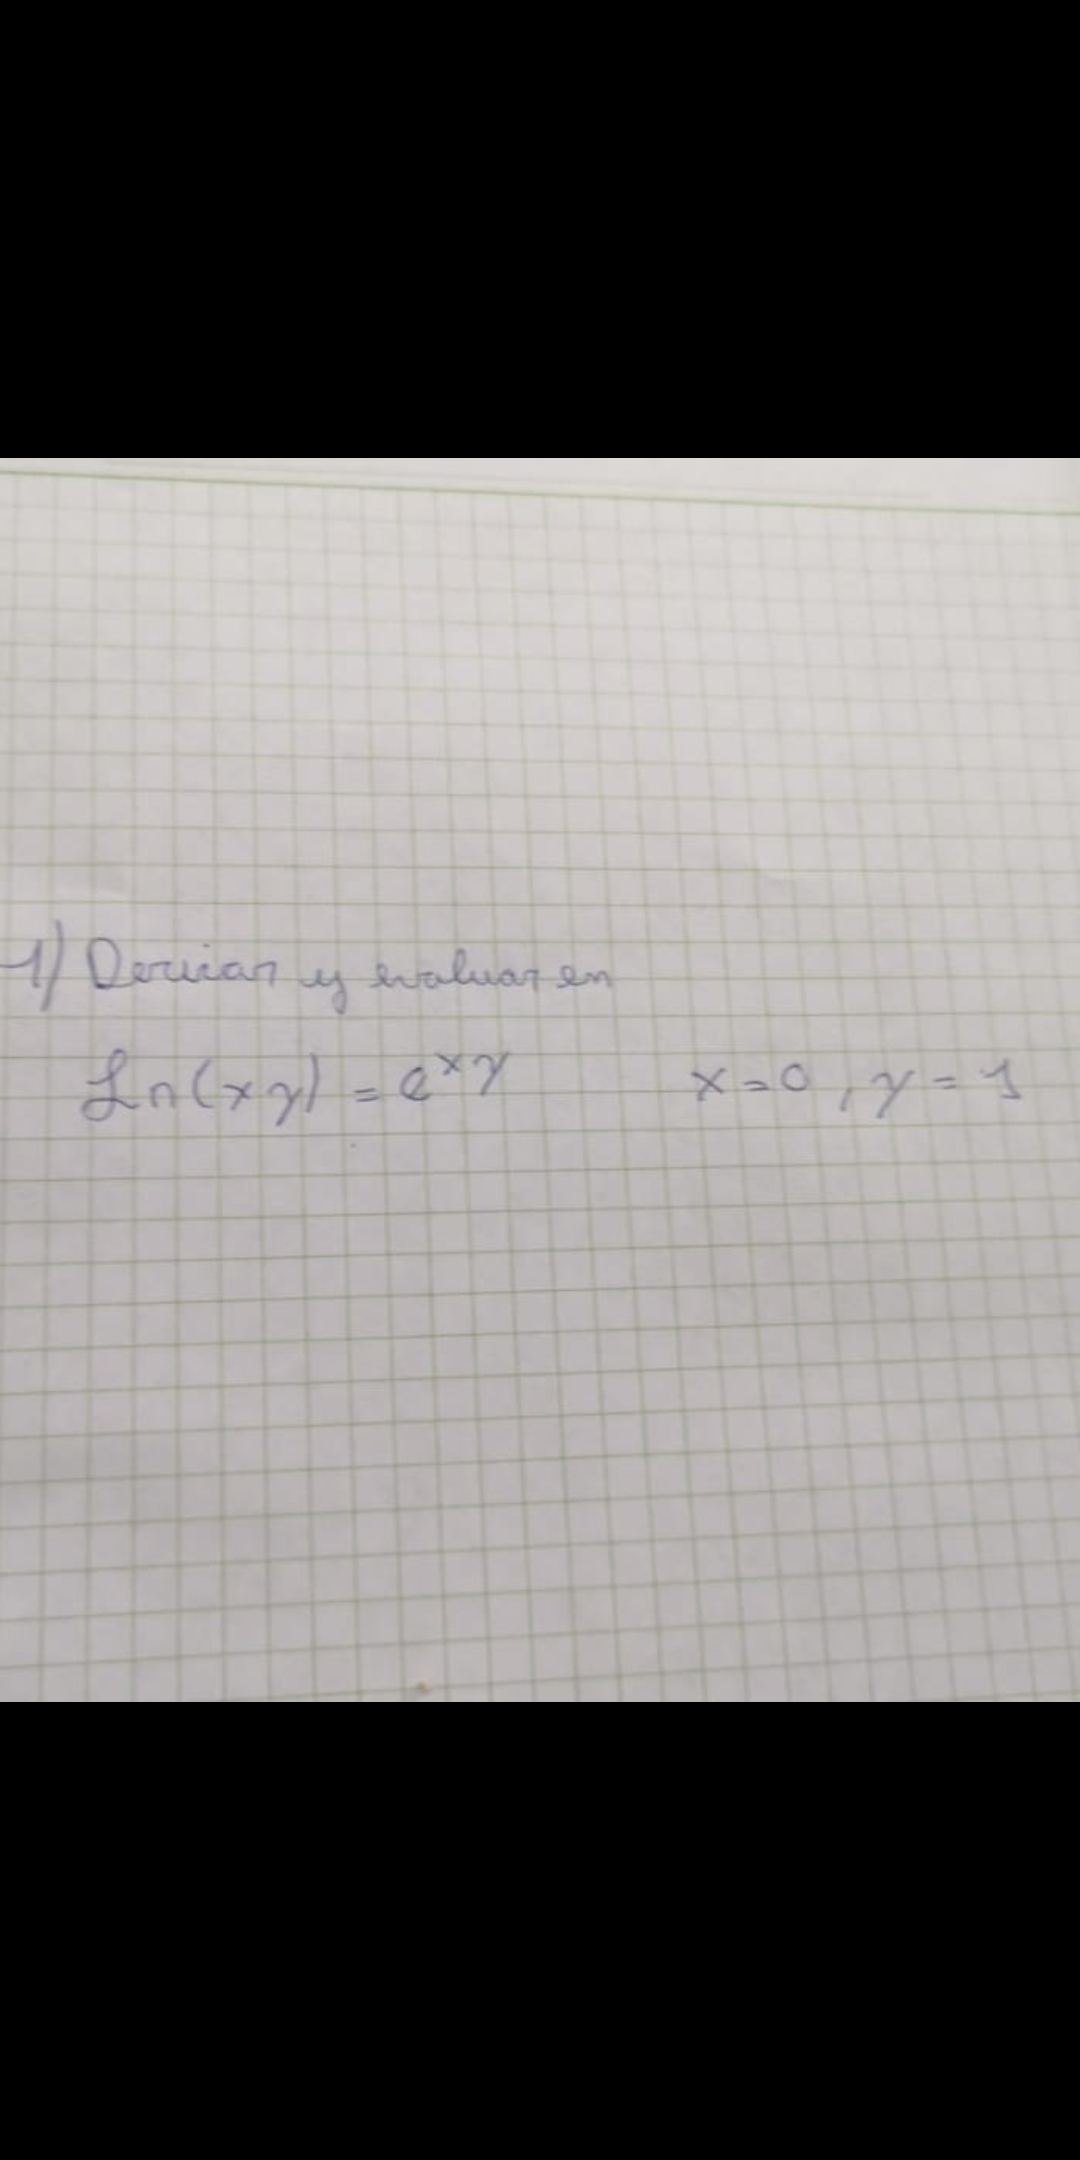 1) Derivar y evaluar en
Ln(xy) = e^xy x=0, y=1